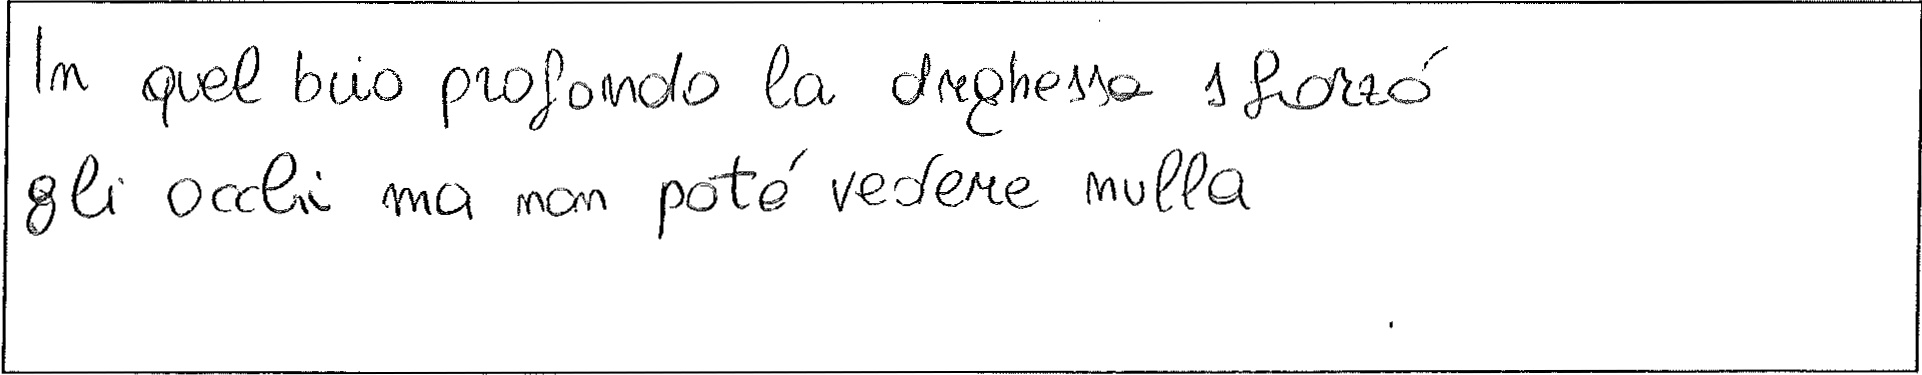 In quel buio profondo la dreghessa sforzó
gli occhi ma non poté vedere nulla